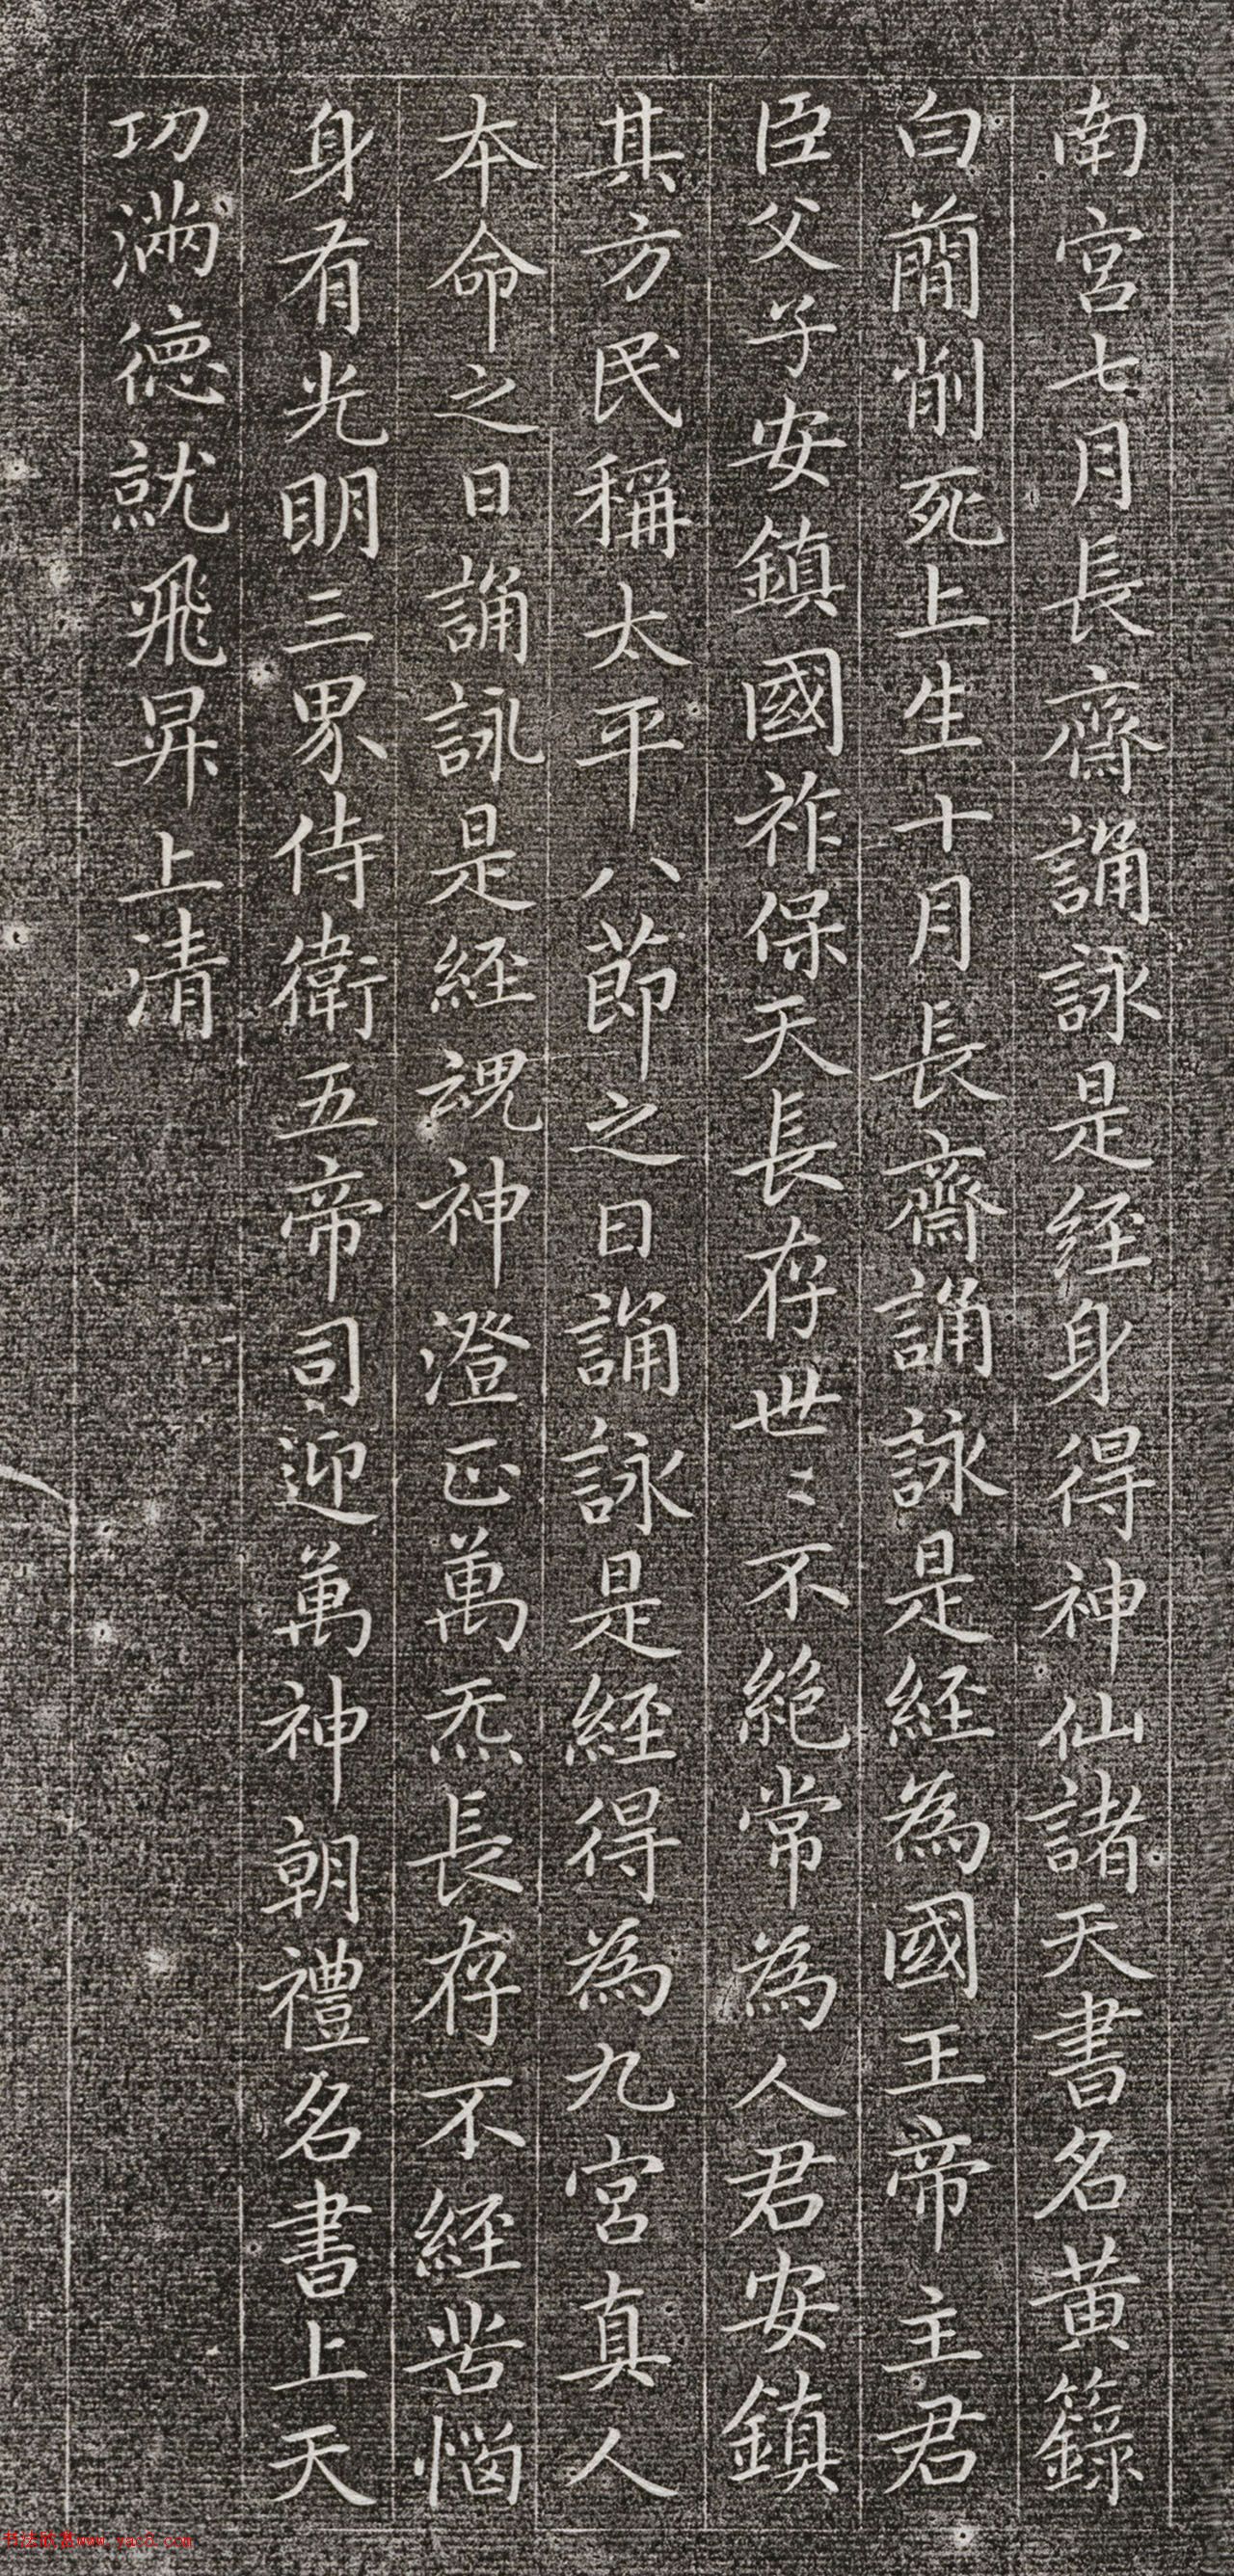 南宮七月長齋誦詠是経身得神仙諸天書名黃籙
白簡削死上生十月長齋誦詠是経為國王帝主君
臣父子安鎮國祚保天長存世〻不絶常為人君安鎮
其方民稱太平八節之日誦詠是経得為九宮真人
本命之日誦詠是経魂神澄正萬炁長存不経苦惱
身有光明三界侍衛五帝司迎萬神朝禮名書上天
功滿德就飛昇上清
www.yac8.com